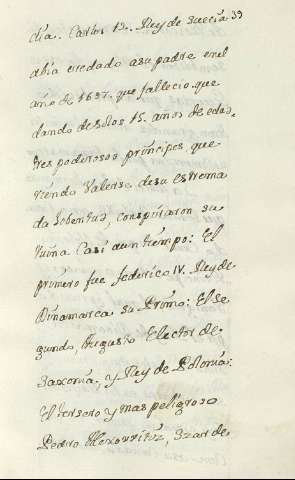 33
cia. Carlos 12. Rey de Suecia
abia eredado a su padre en el
año de 1697. que fallecio. que
dando de solos 15. anos de edad,
tres poderosos principes, que
riendo Valerse de su estrema
da Jobentud, conspiraron su
ruina Casi a un tiempo: El
primero fue federico IV. Rey de
Dinamarca su Primo: El se
gundo, Augusto Elector de
Saxonia, y Rey de Polonia:
El tersero y mas peligroso
Pedro Alexovvitz, Szar de